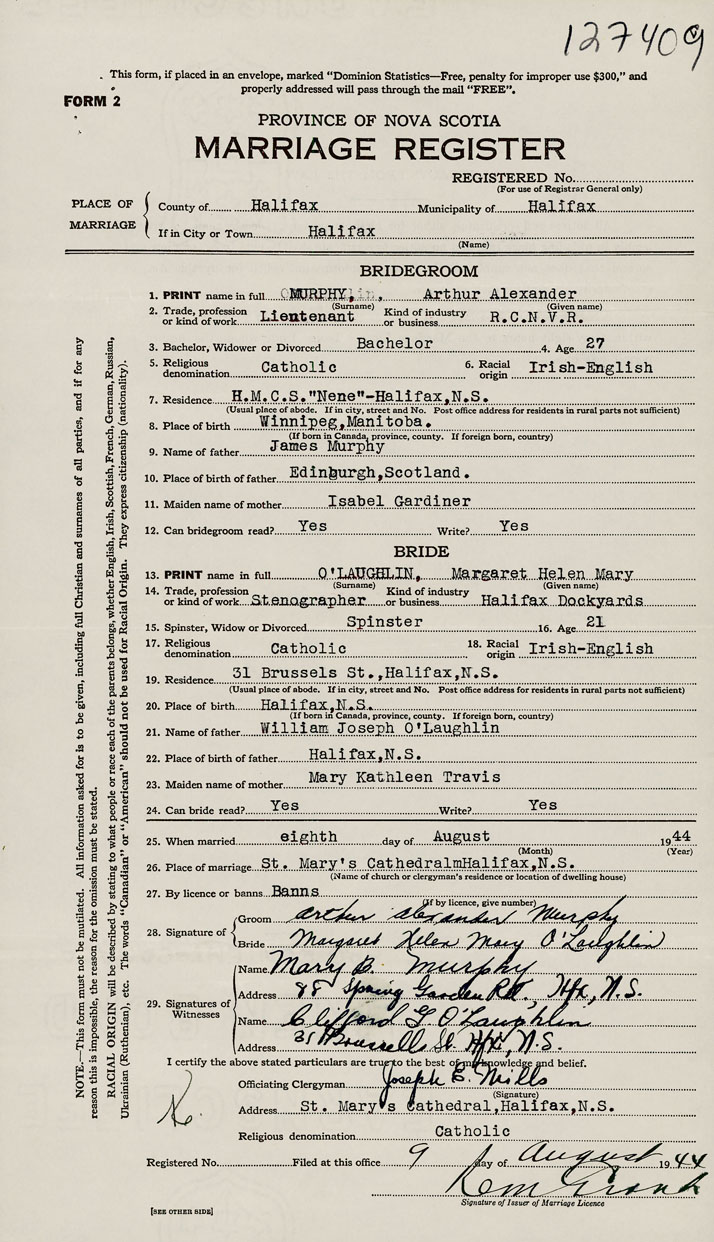 127409
This form, if placed in an envelope, marked "Dominion Statistics—Free, penalty for improper use $300," and
properly addressed will pass through the mail "FREE".
FORM 2
PROVINCE OF NOVA SCOTIA
MARRIAGE REGISTER
REGISTERED No.
(For use of Registrar General only)
PLACE OF MARRIAGE
County of Halifax Municipality of Halifax
If in City or Town Halifax
(Name)
BRIDEGROOM
1. PRINT name in full MURPHY, Arthur Alexander
(Surname) (Given name)
2. Trade, profession or kind of work Lieutenant Kind of industry or business R.C.N.V.R.
3. Bachelor, Widower or Divorced Bachelor 4. Age 27
5. Religious denomination Catholic 6. Racial origin Irish-English
7. Residence H.M.C.S."Nene"-Halifax,N.S.
(Usual place of abode. If in city, street and No. Post office address for residents in rural parts not sufficient)
8. Place of birth Winnipeg,Manitoba.
(If born in Canada, province, county. If foreign born, country)
9. Name of father James Murphy
10. Place of birth of father Edinburgh,Scotland.
11. Maiden name of mother Isabel Gardiner
12. Can bridegroom read? Yes Write? Yes
BRIDE
13. PRINT name in full O'LAUGHLIN, Margaret Helen Mary
(Surname) (Given name)
14. Trade, profession or kind of work Stenographer Kind of industry or business Halifax Dockyards
15. Spinster, Widow or Divorced Spinster 16. Age 21
17. Religious denomination Catholic 18. Racial origin Irish-English
19. Residence 31 Brussels St.,Halifax,N.S.
(Usual place of abode. If in city, street and No. Post office address for residents in rural parts not sufficient)
20. Place of birth Halifax,N.S.
(If born in Canada, province, county. If foreign born, country)
21. Name of father William Joseph O'Laughlin
22. Place of birth of father Halifax,N.S.
23. Maiden name of mother Mary Kathleen Travis
24. Can bride read? Yes Write? Yes
25. When married eighth day of August 1944
(Month) (Year)
26. Place of marriage St. Mary's CathedralmHalifax,N.S.
(Name of church or clergyman's residence or location of dwelling house)
27. By licence or banns Banns
(If by licence, give number)
28. Signature of
Groom Arthur Alexander Murphy
Bride Margaret Helen Mary O'Laughlin
29. Signatures of Witnesses
Name Mary B. Murphy
Address 88 Spring Garden Rd., Hfx, N.S.
Name Clifford G O'Laughlin
Address 31 Brussells St. Hfx, N.S.
I certify the above stated particulars are true to the best of my knowledge and belief.
Officiating Clergyman Joseph E. Mills
(Signature)
Address St. Mary's Cathedral,Halifax,N.S.
Religious denomination Catholic
Registered No. Filed at this office 9 day of August 1944
Signature of Issuer of Marriage Licence
[SEE OTHER SIDE]
NOTE.—This form must not be mutilated. All information asked for is to be given, including full Christian and surnames of all parties, and if for any
reason this is impossible, the reason for the omission must be stated.
RACIAL ORIGIN will be described by stating to what people or race each of the parents belongs, whether English, Irish, Scottish, French, German, Russian,
Ukrainian (Ruthenian), etc. The words "Canadian" or "American" should not be used for Racial Origin. They express citizenship (nationality).